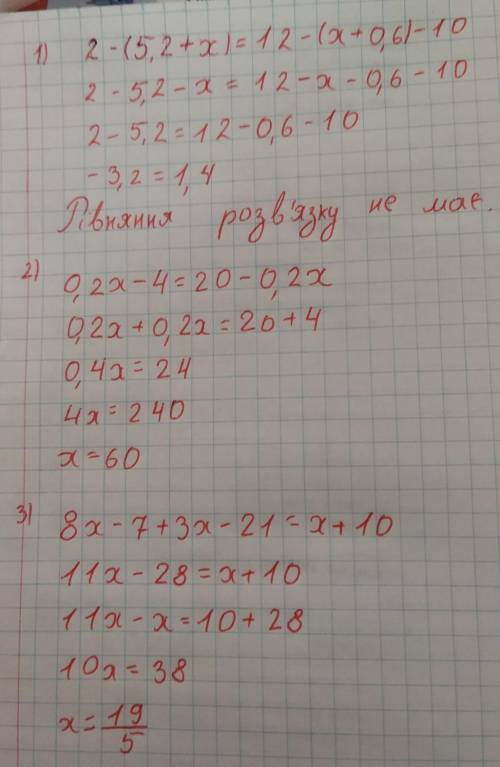 1) 2-(5,2+x)=12-(x+0,6)-10
2-5,2-x=12-x-0,6-10
2-5,2=12-0,6-10
-3,2=1,4
Рівняння розв'язку не має.
2) 0,2x-4=20-0,2x
0,2x+0,2x=20+4
0,4x=24
4x=240
x=60
3) 8x-7+3x-21=x+10
11x-28=x+10
11x-x=10+28
10x=38
x=19/5